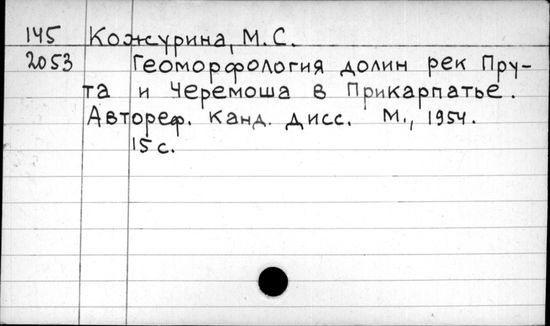 145 Кожурина, М.С.
2053 Геоморфология долин рек Пру-
та и Черемоша в Прикарпатье.
Автореф. канд. дисс. М., 1954.
15 с.